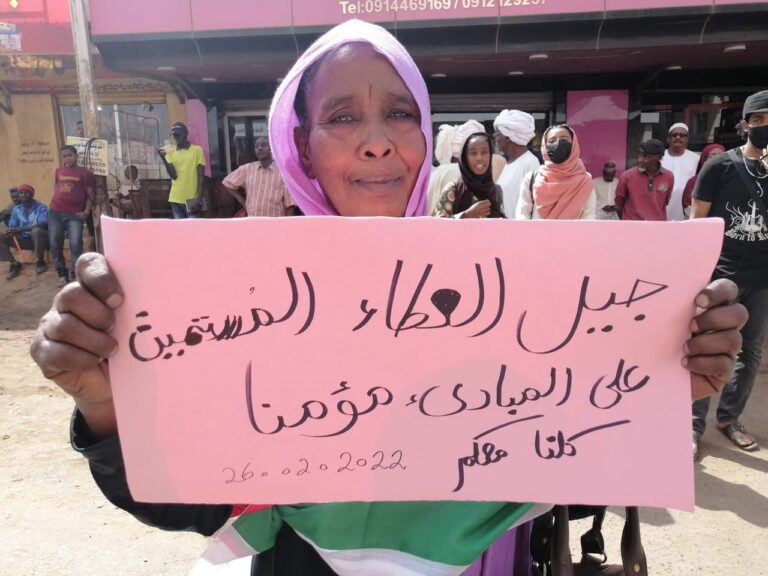 Tel:0914469169 / 0912129257
جيل العطاء المستميت
على المبادىء مؤمنا
كلنا معكم
26.02.2022